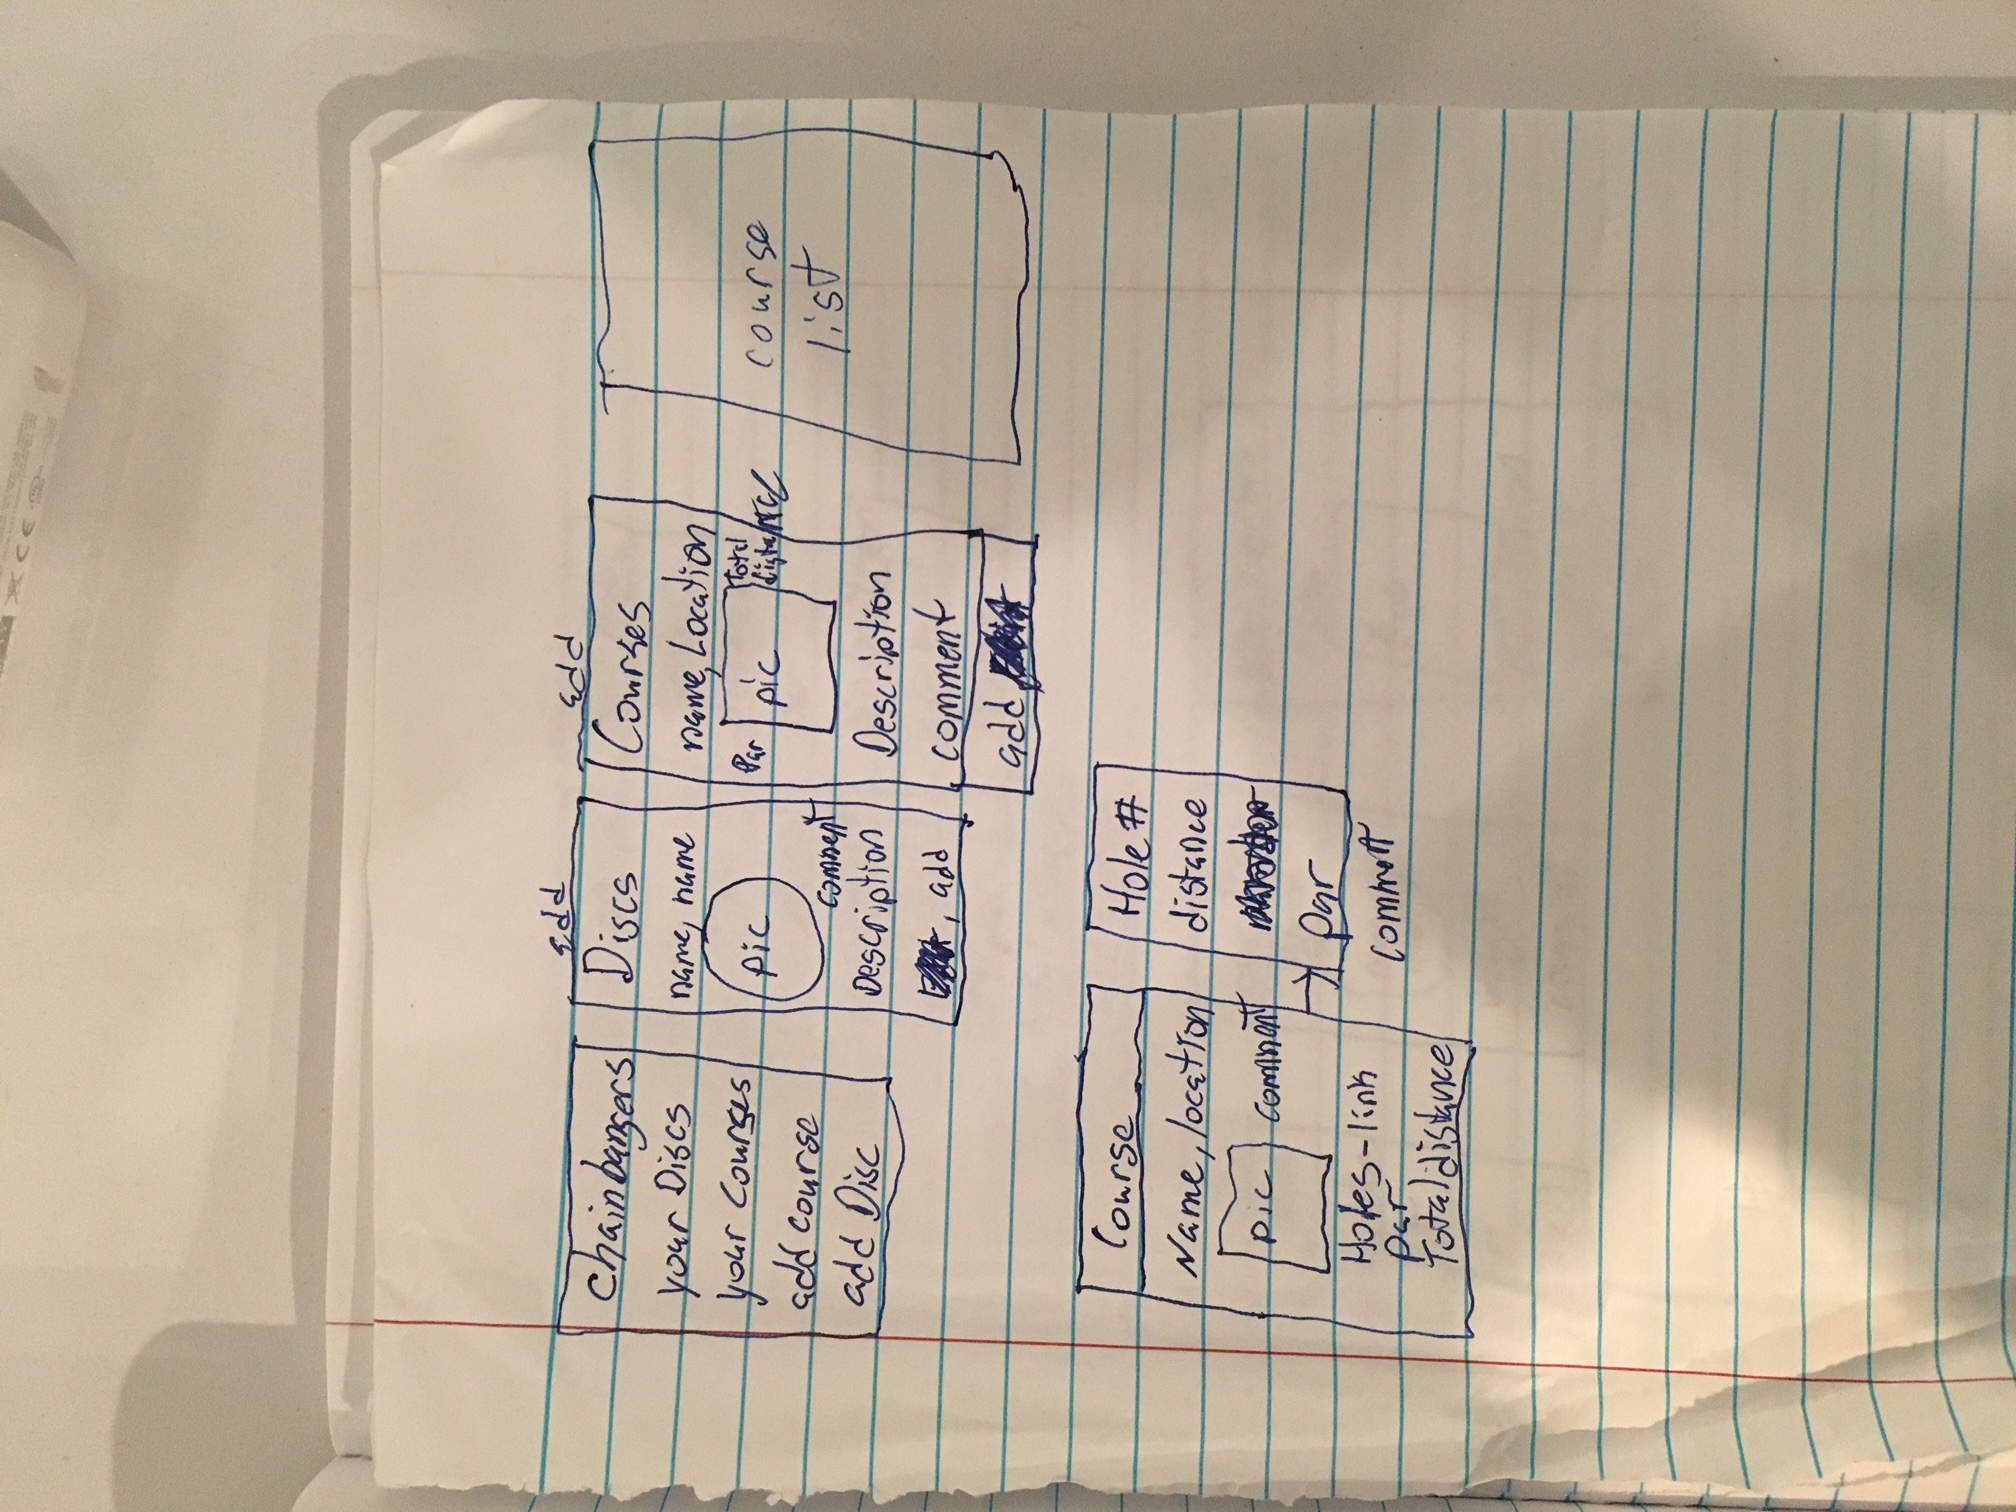 chainbangers
your Discs
your Courses
add course
add Disc
add
Discs
name, name
pic
comment
Description
, add
add
Courses
name, Location
Par
pic
Total
distance
Description
comment
add
course
list
Course
Name, location
pic
comment
Holes-link
par
Total distance
Hole #
distance
par
comment
CE